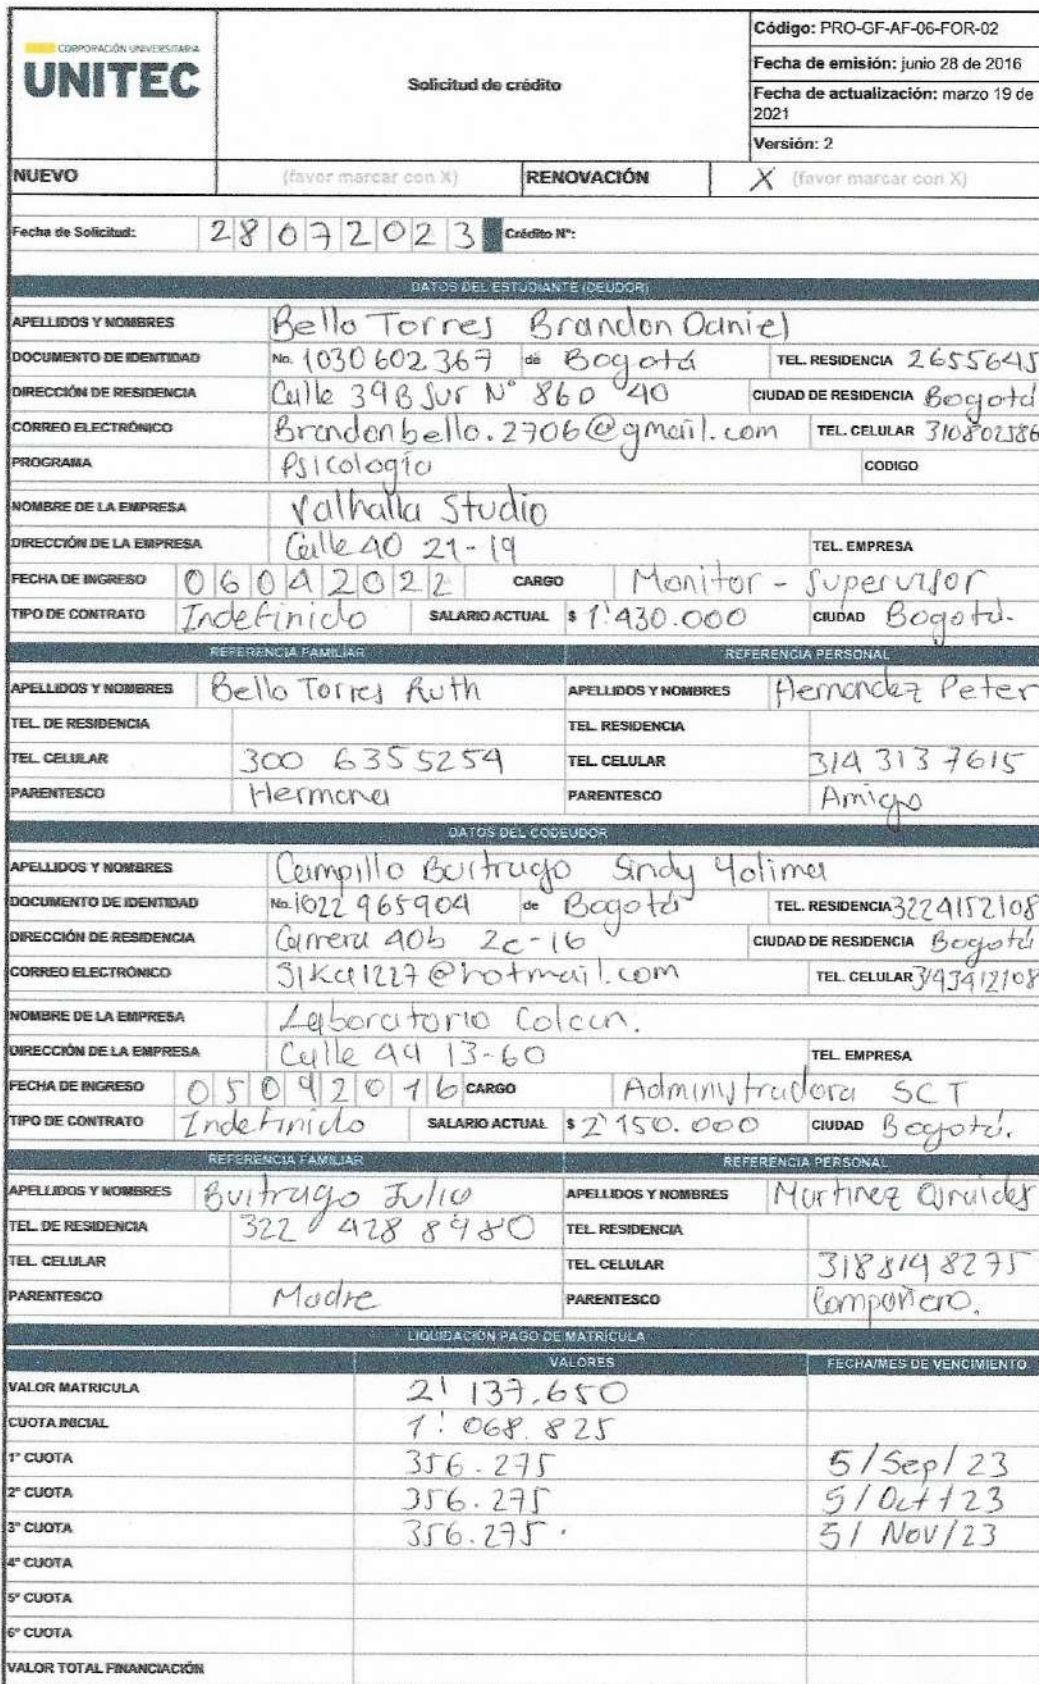 CORPORACIÓN UNIVERSITARIA
UNITEC
Solicitud de crédito
Código: PRO-GF-AF-06-FOR-02
Fecha de emisión: junio 28 de 2016
Fecha de actualización: marzo 19 de 2021
Versión: 2
NUEVO (favor marcar con X) RENOVACIÓN X (favor marcar con X)
Fecha de Solicitud: 28072023 Crédito N°:
DATOS DEL ESTUDIANTE (DEUDOR)
APELLIDOS Y NOMBRES Bello Torres Brandon Daniel
DOCUMENTO DE IDENTIDAD No. 1030602367 de Bogotá TEL. RESIDENCIA 2655645
DIRECCIÓN DE RESIDENCIA Calle 39B Sur N° 86D 40 CIUDAD DE RESIDENCIA Bogotá
CORREO ELECTRÓNICO Brandonbello.2706@gmail.com TEL. CELULAR
PROGRAMA Psicología CODIGO
NOMBRE DE LA EMPRESA Valhalla Studio
DIRECCIÓN DE LA EMPRESA Calle 40 21-19 TEL. EMPRESA
FECHA DE INGRESO 06042022 CARGO Monitor - Supervisor
TIPO DE CONTRATO Indefinido SALARIO ACTUAL $ 1'430.000 CIUDAD Bogotá.
REFERENCIA FAMILIAR REFERENCIA PERSONAL
APELLIDOS Y NOMBRES Bello Torres Ruth APELLIDOS Y NOMBRES Hernandez Peter
TEL. DE RESIDENCIA TEL. RESIDENCIA
TEL. CELULAR 300 6355254 TEL. CELULAR 314 313 7615
PARENTESCO Hermana PARENTESCO Amigo
DATOS DEL CODEUDOR
APELLIDOS Y NOMBRES Campillo Buitrago Sindy Yolima
DOCUMENTO DE IDENTIDAD No. 1022965904 de Bogotá TEL. RESIDENCIA 3224152108
DIRECCIÓN DE RESIDENCIA Carrera 40b 2c-16 CIUDAD DE RESIDENCIA Bogotá
CORREO ELECTRÓNICO Sika1227@hotmail.com TEL. CELULAR 3143412108
NOMBRE DE LA EMPRESA Laboratorio Colcan.
DIRECCIÓN DE LA EMPRESA Calle 49 13-60 TEL. EMPRESA
FECHA DE INGRESO 05092016 CARGO Administradora SCT
TIPO DE CONTRATO Indefinido SALARIO ACTUAL $ 2'150.000 CIUDAD Bogotá.
REFERENCIA FAMILIAR REFERENCIA PERSONAL
APELLIDOS Y NOMBRES Buitrago Julia APELLIDOS Y NOMBRES Martinez
TEL. DE RESIDENCIA 322 428 8980 TEL. RESIDENCIA
TEL. CELULAR TEL. CELULAR 3188198275
PARENTESCO Madre PARENTESCO Compañero.
LIQUIDACIÓN PAGO DE MATRÍCULA
VALORES FECHA/MES DE VENCIMIENTO
VALOR MATRICULA 2'137.650
CUOTA INICIAL 1'.068.825
1° CUOTA 356.275 5/Sep/23
2° CUOTA 356.275 5/Oct/23
3° CUOTA 356.275. 5/Nov/23
4° CUOTA
5° CUOTA
6° CUOTA
VALOR TOTAL FINANCIACIÓN